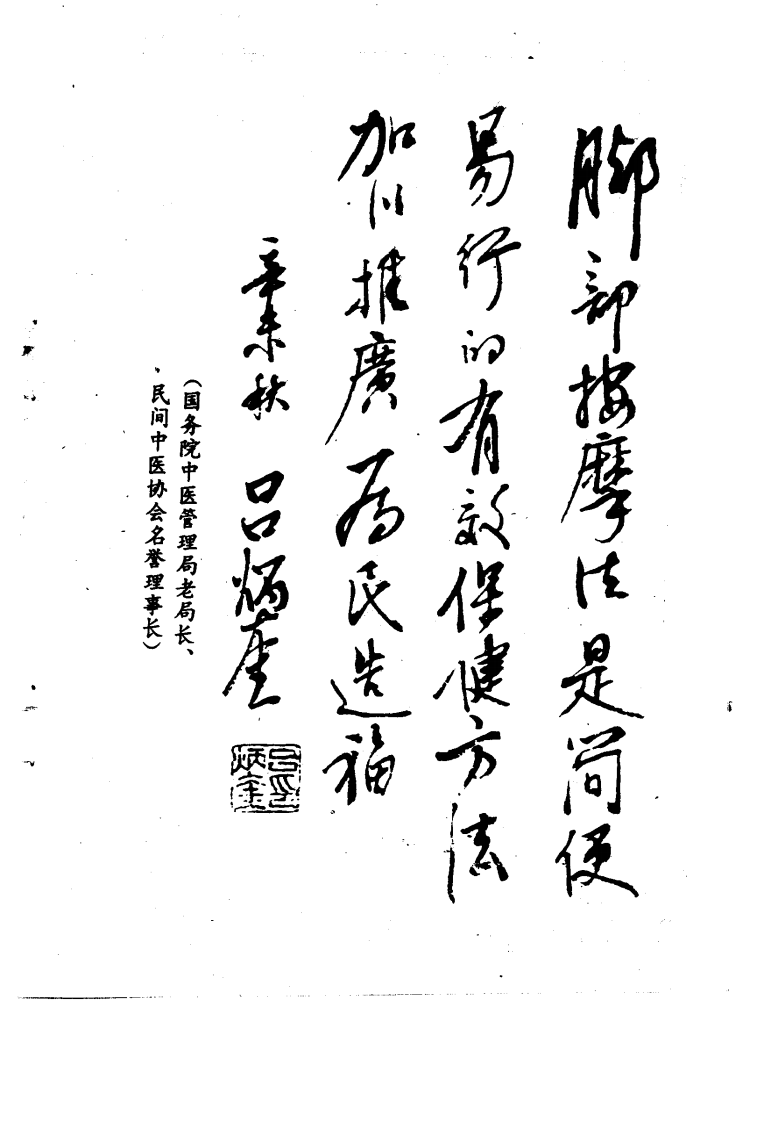 脚部按摩法是简便
易行的有效保健方法
加以推廣为民造福
辛未秋 吕炳奎
吕炳奎
(国务院中医管理局老局长、
民间中医协会名誉理事长)